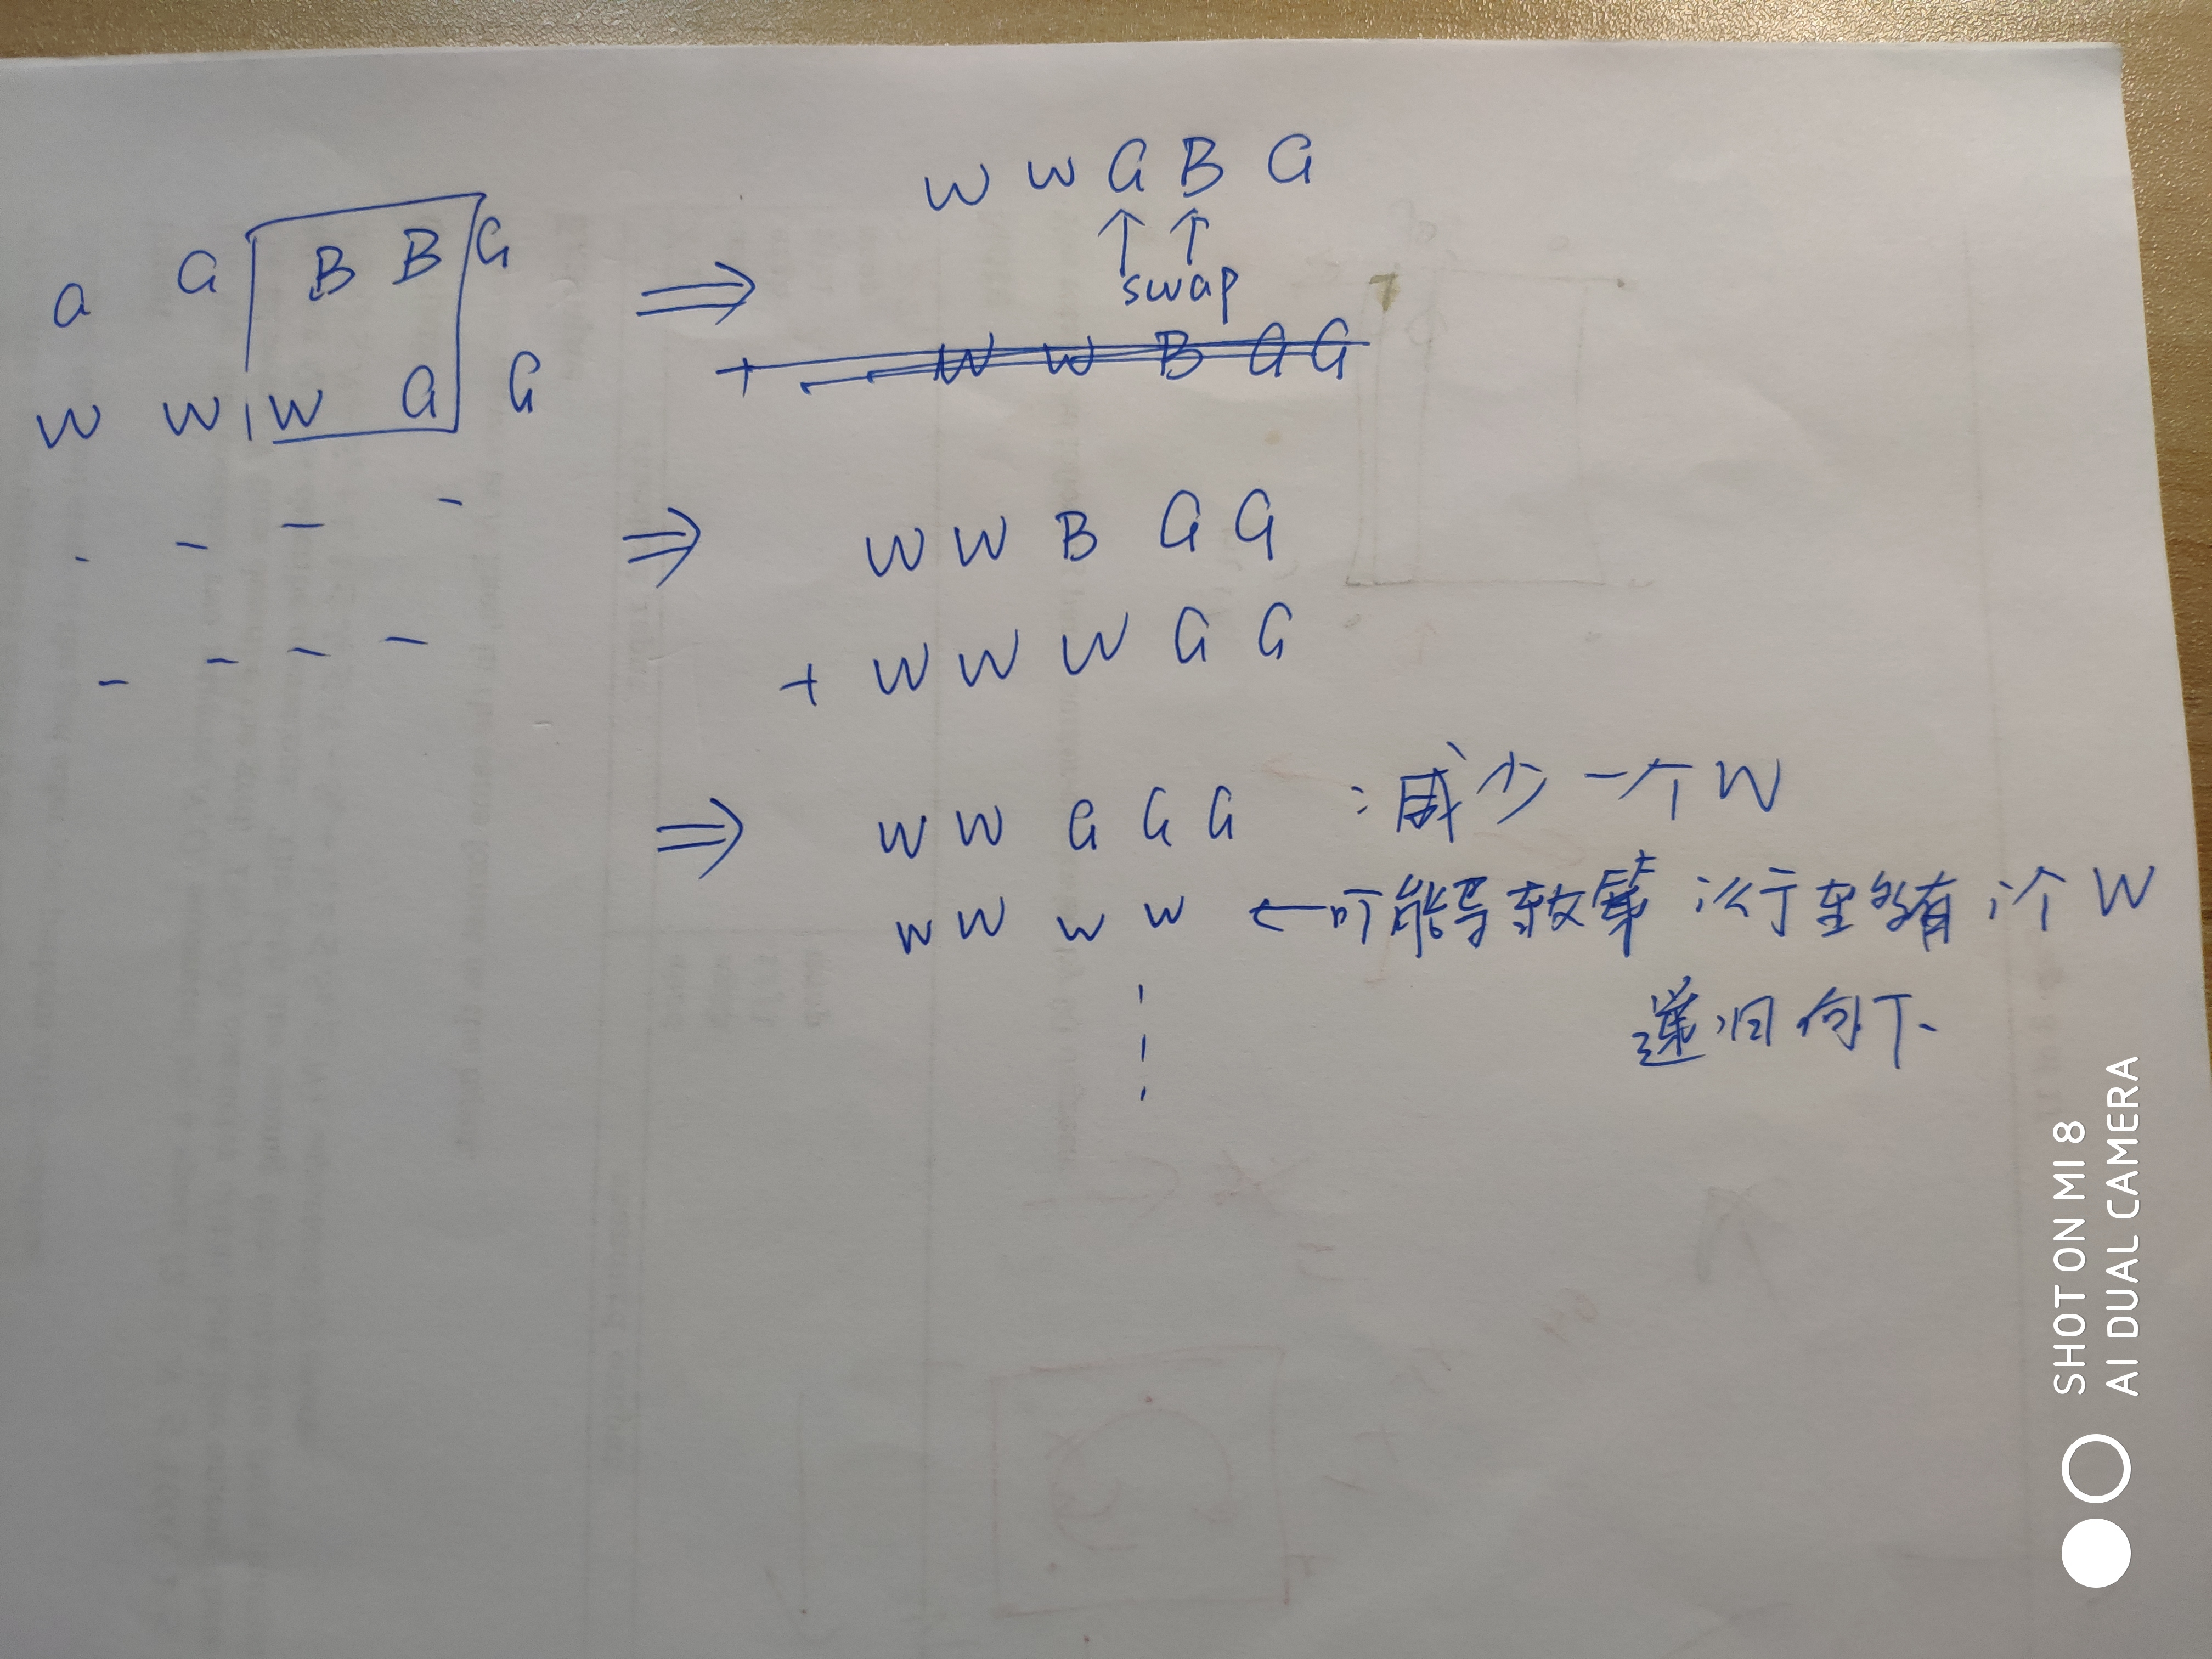 a G B B G
W W W G G
⇒ W W G B G
↑ ↑
swap
+ W W B G G
⇒ W W B G G
+ W W W G G
⇒ W W G G G : 减少一个W
W W W W ← 可能导致第 i 行至多有 i 个 W
递归向下
SHOT ON MI 8
AI DUAL CAMERA